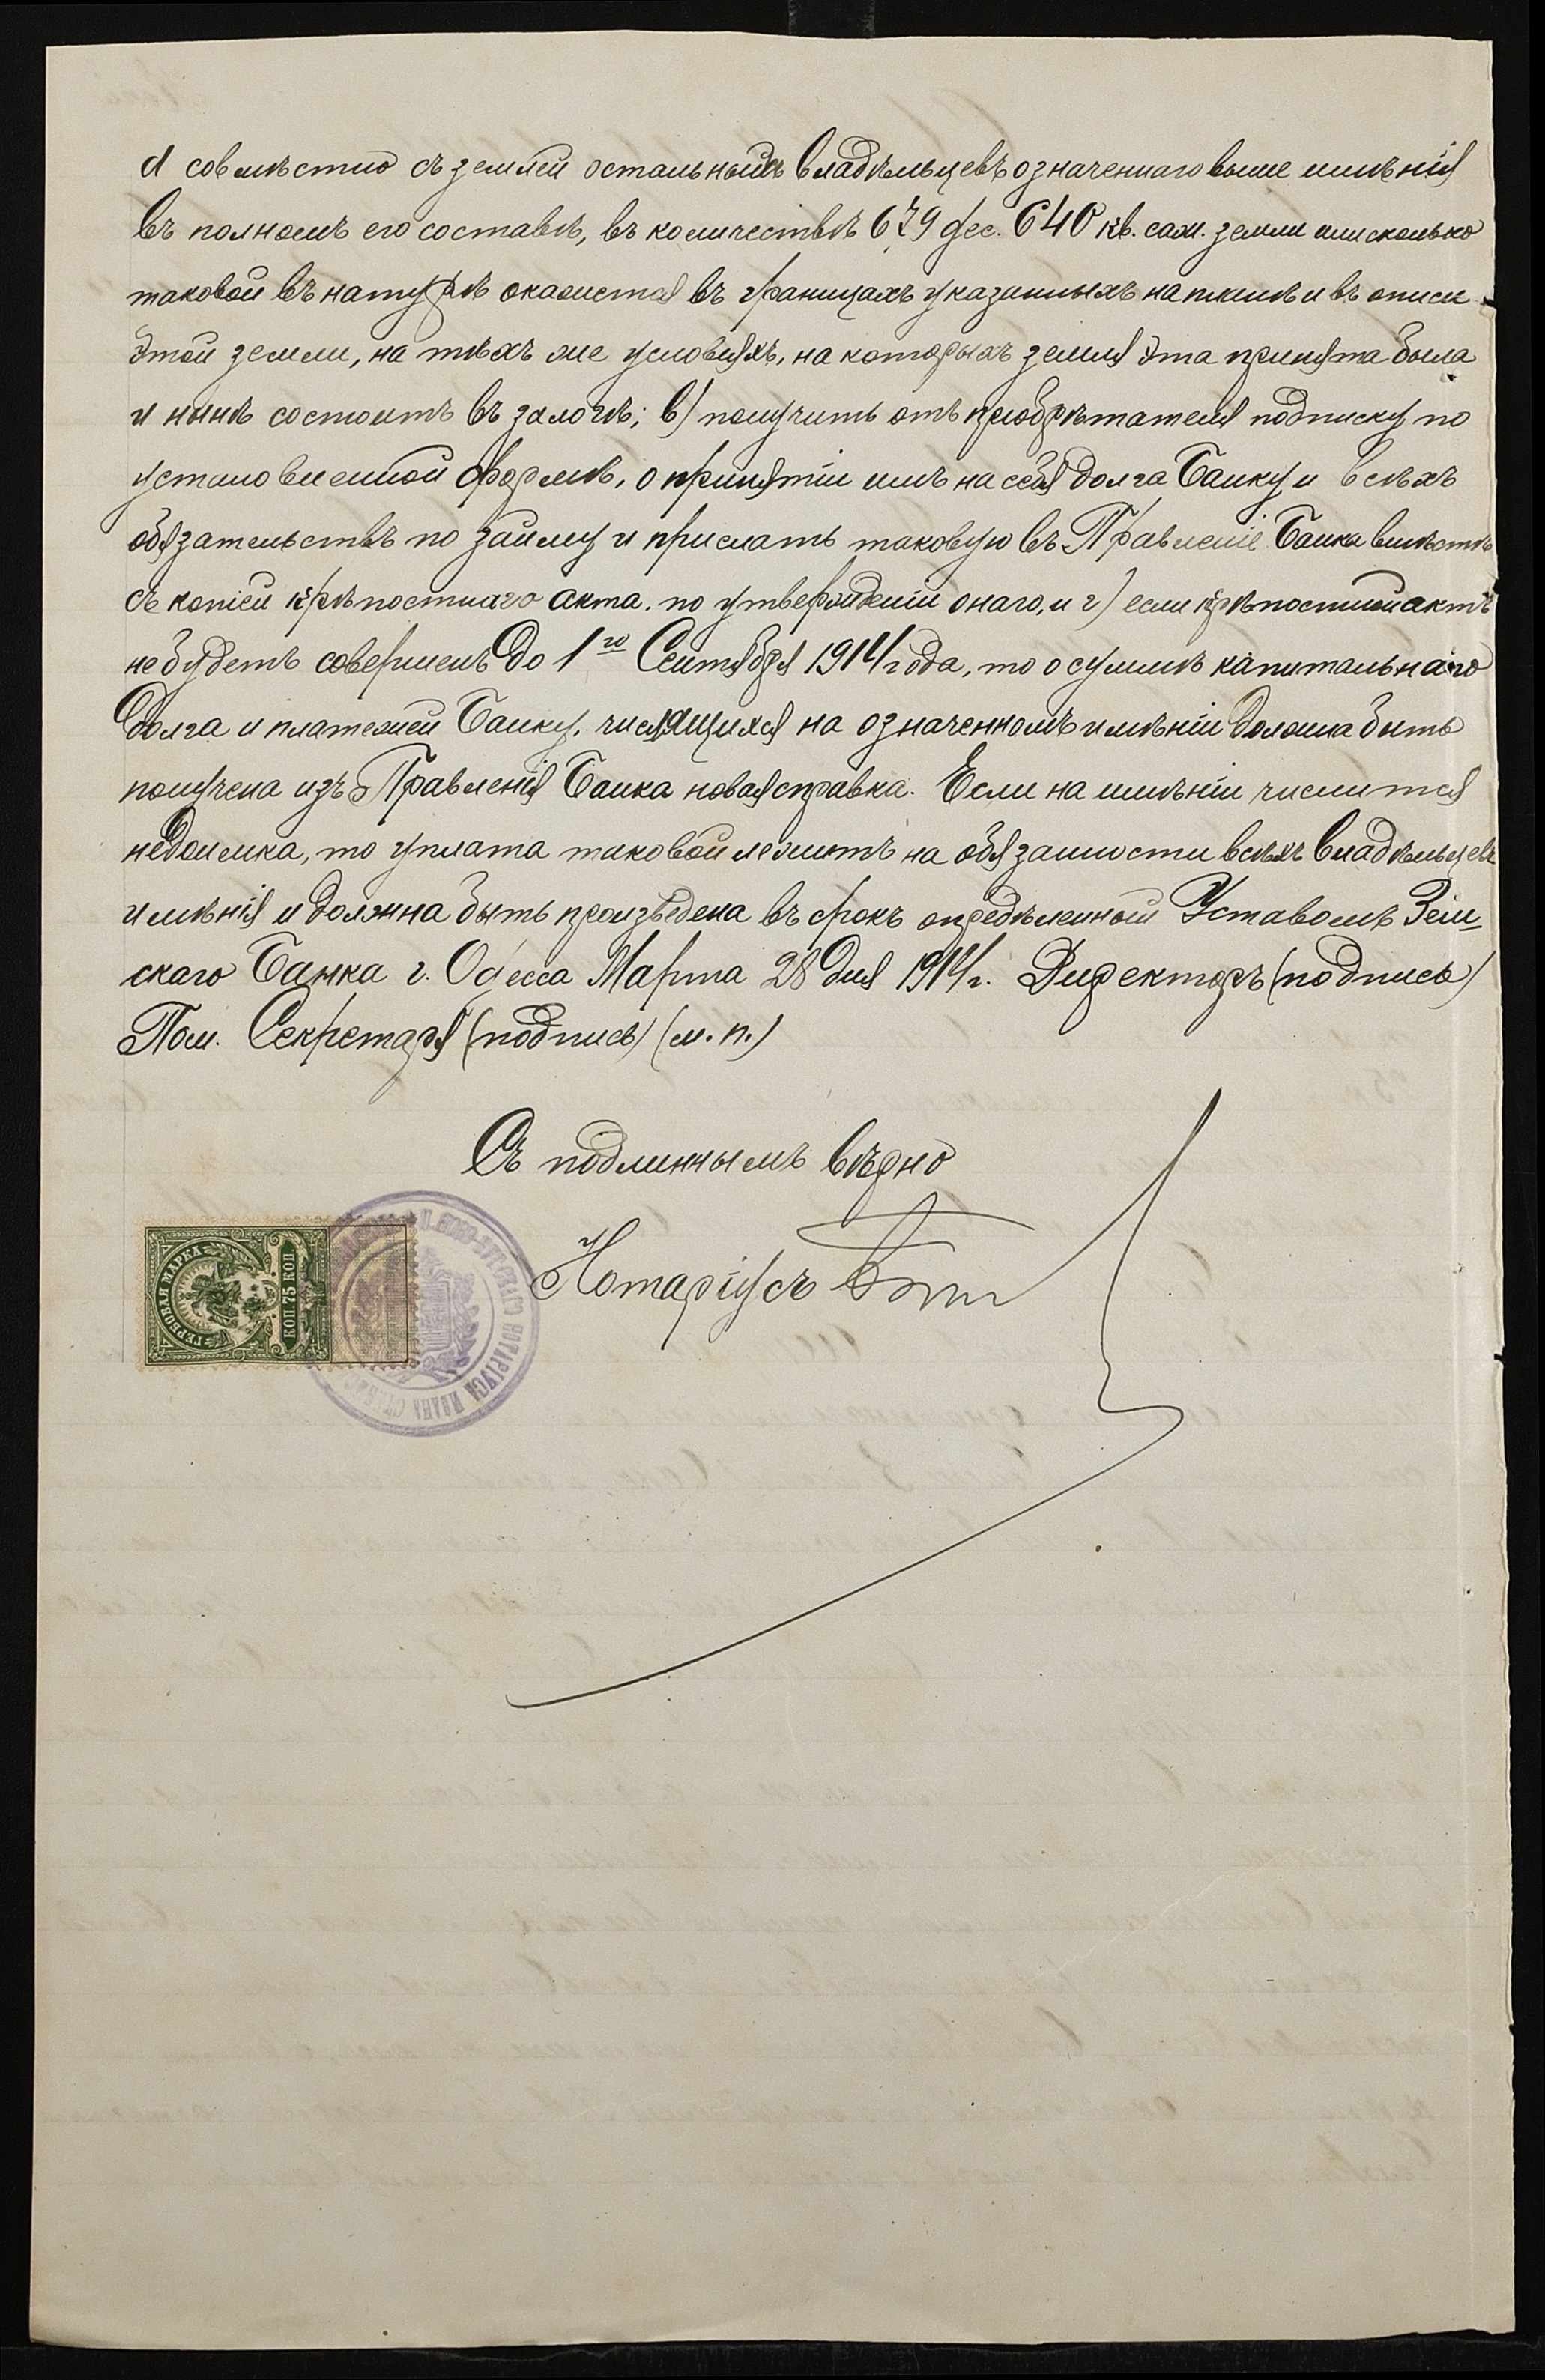 и совмѣстно съ землей остальныхъ владѣльцевъ означеннаго выше имѣнія
въ полномъ его составѣ, въ количествѣ 679 дес. 640 кв. саж. земли или сколько
таковой въ натурѣ окажется въ границахъ указанныхъ на планѣ и въ описи
этой земли, на тѣхъ же условіяхъ, на которыхъ земля эта принята была
и нынѣ состоитъ въ залогѣ; в) получить отъ пріобрѣтателя подписку по
установленной формѣ, о принятіи имъ на себя долга Банку и всѣхъ
обязательствъ по займу и прислать таковую въ Правленіе Банка вмѣстѣ
съ копіей крѣпостнаго акта, по утвержденіи онаго, и г) если крѣпостной актъ
не будетъ совершенъ до 1го Сентября 1914 года, то о суммѣ капитальнаго
долга и платежей Банку, числящихся на означенномъ имѣніи должна быть
получена изъ Правленія Банка новая справка. Если на имѣніи числится
недоимка, то уплата таковой лежитъ на обязанности всѣхъ владѣльцевъ
имѣнія и должна быть произведена въ срокъ опредѣленный Уставомъ Зем-
скаго Банка г. Одесса Марта 28 дня 1914 г. Директоръ (подпись)
Пом. Секретаря (подпись) (м. п.)
Съ подлиннымъ вѣрно
Нотаріусъ
ГЕРБОВАЯ МАРКА
КОП 75 КОП
НОТАРІУСА ИВАНА